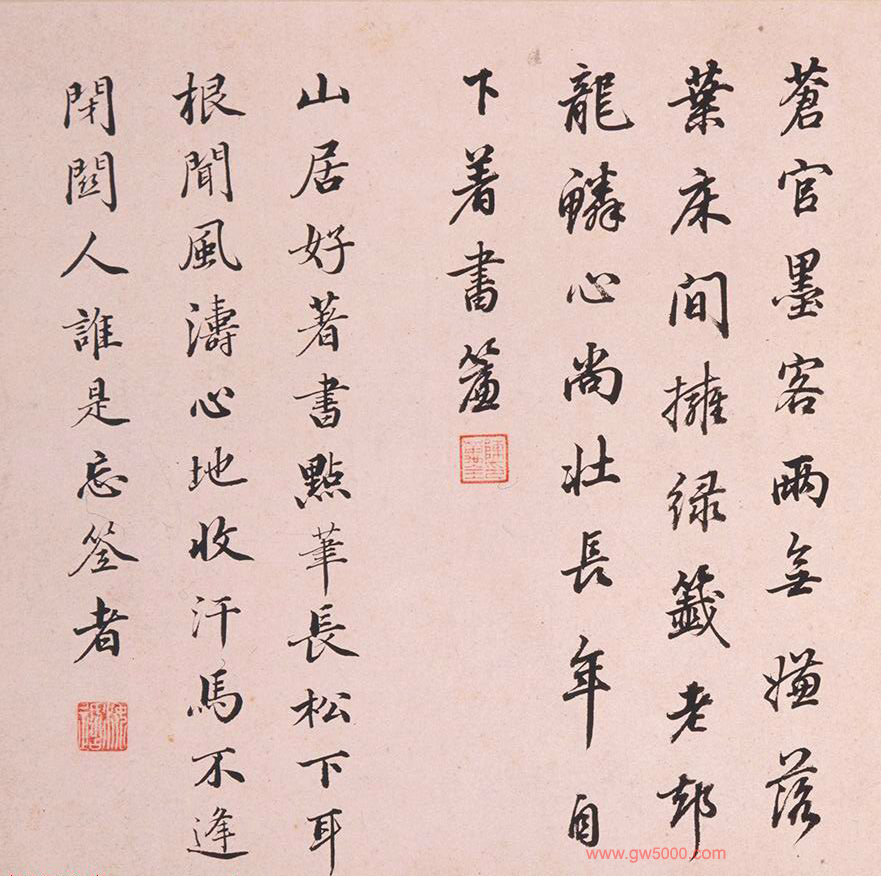 蒼官墨客兩無嫌落
葉床間擁綠籤老却
龍鱗心尚壯長年自
下着書簾
山居好著書點筆長松下耳
根聞風濤心地收汗馬不逢
閉關人誰是忘筌者
www.gw5000.com